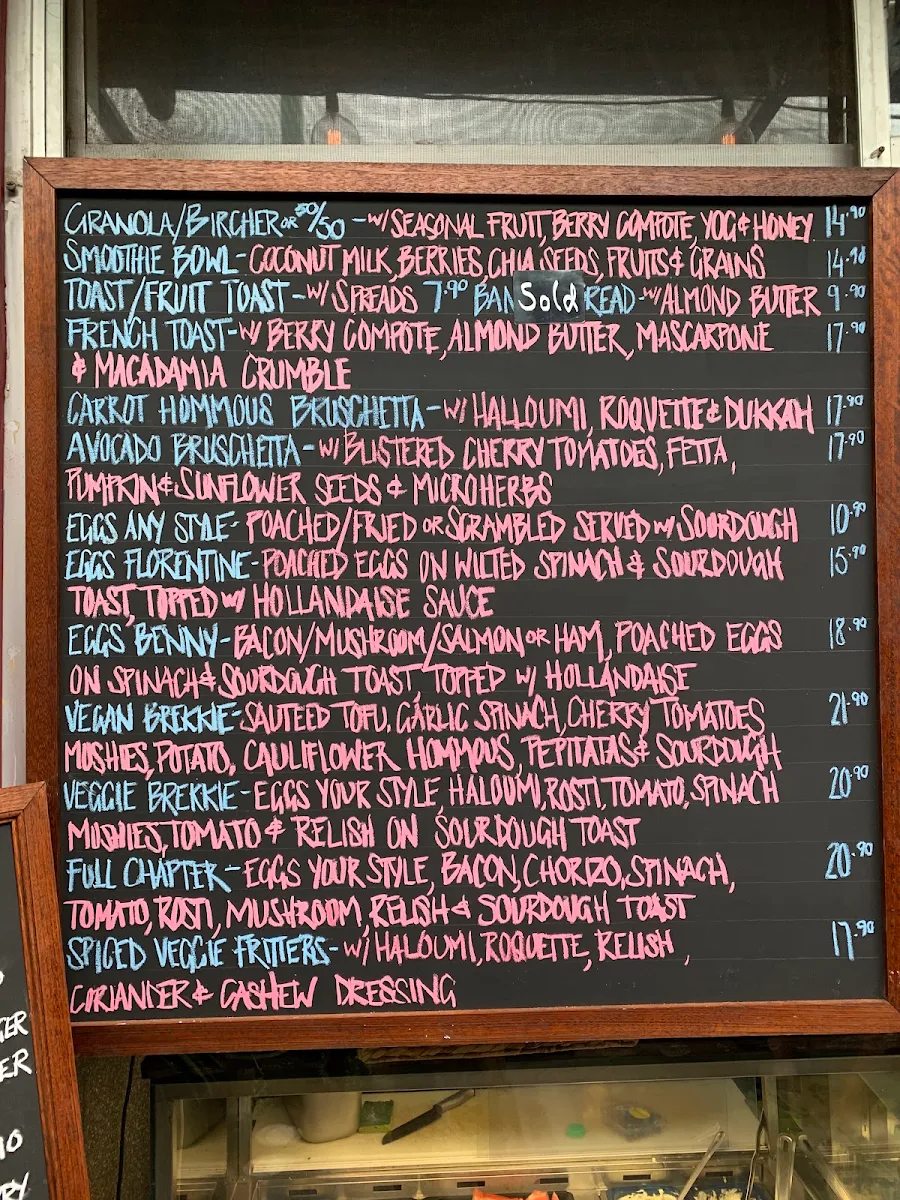 GRANOLA/BIRCHER OR 50/50 - W/ SEASONAL FRUIT, BERRY COMPOTE, YOG & HONEY 14.90
SMOOTHIE BOWL - COCONUT MILK, BERRIES, CHIA SEEDS, FRUITS & GRAINS 14.90
TOAST/FRUIT TOAST - W/ SPREADS 7.90 BAN Sold READ - W/ ALMOND BUTTER 9.90
FRENCH TOAST - W/ BERRY COMPOTE, ALMOND BUTTER, MASCARPONE 17.90
& MACADAMIA CRUMBLE
CARROT HOMMOUS BRUSCHETTA - W/ HALLOUMI, ROQUETTE & DUKKAH 17.90
AVOCADO BRUSCHETTA - W/ BLISTERED CHERRY TOMATOES, FETTA, 17.90
PUMPKIN & SUNFLOWER SEEDS & MICROHERBS
EGGS ANY STYLE - POACHED/FRIED OR SCRAMBLED SERVED W/ SOURDOUGH 10.90
EGGS FLORENTINE - POACHED EGGS ON WILTED SPINACH & SOURDOUGH 15.90
TOAST, TOPPED W/ HOLLANDAISE SAUCE
EGGS BENNY - BACON/MUSHROOM/SALMON OR HAM, POACHED EGGS 18.90
ON SPINACH & SOURDOUGH TOAST, TOPPED W/ HOLLANDAISE
VEGAN BREKKIE - SAUTEED TOFU, GARLIC SPINACH, CHERRY TOMATOES 21.90
MUSHIES, POTATO, CAULIFLOWER HOMMOUS, PEPITATAS & SOURDOUGH
VEGGIE BREKKIE - EGGS YOUR STYLE, HALOUMI, ROSTI, TOMATO, SPINACH 20.90
MUSHIES, TOMATO & RELISH ON SOURDOUGH TOAST
FULL CHAPTER - EGGS YOUR STYLE, BACON, CHORIZO, SPINACH, 20.90
TOMATO, ROSTI, MUSHROOM, RELISH & SOURDOUGH TOAST
SPICED VEGGIE FRITTERS - W/ HALOUMI, ROQUETTE, RELISH, 17.90
CORIANDER & CASHEW DRESSING
GER
ER
RY